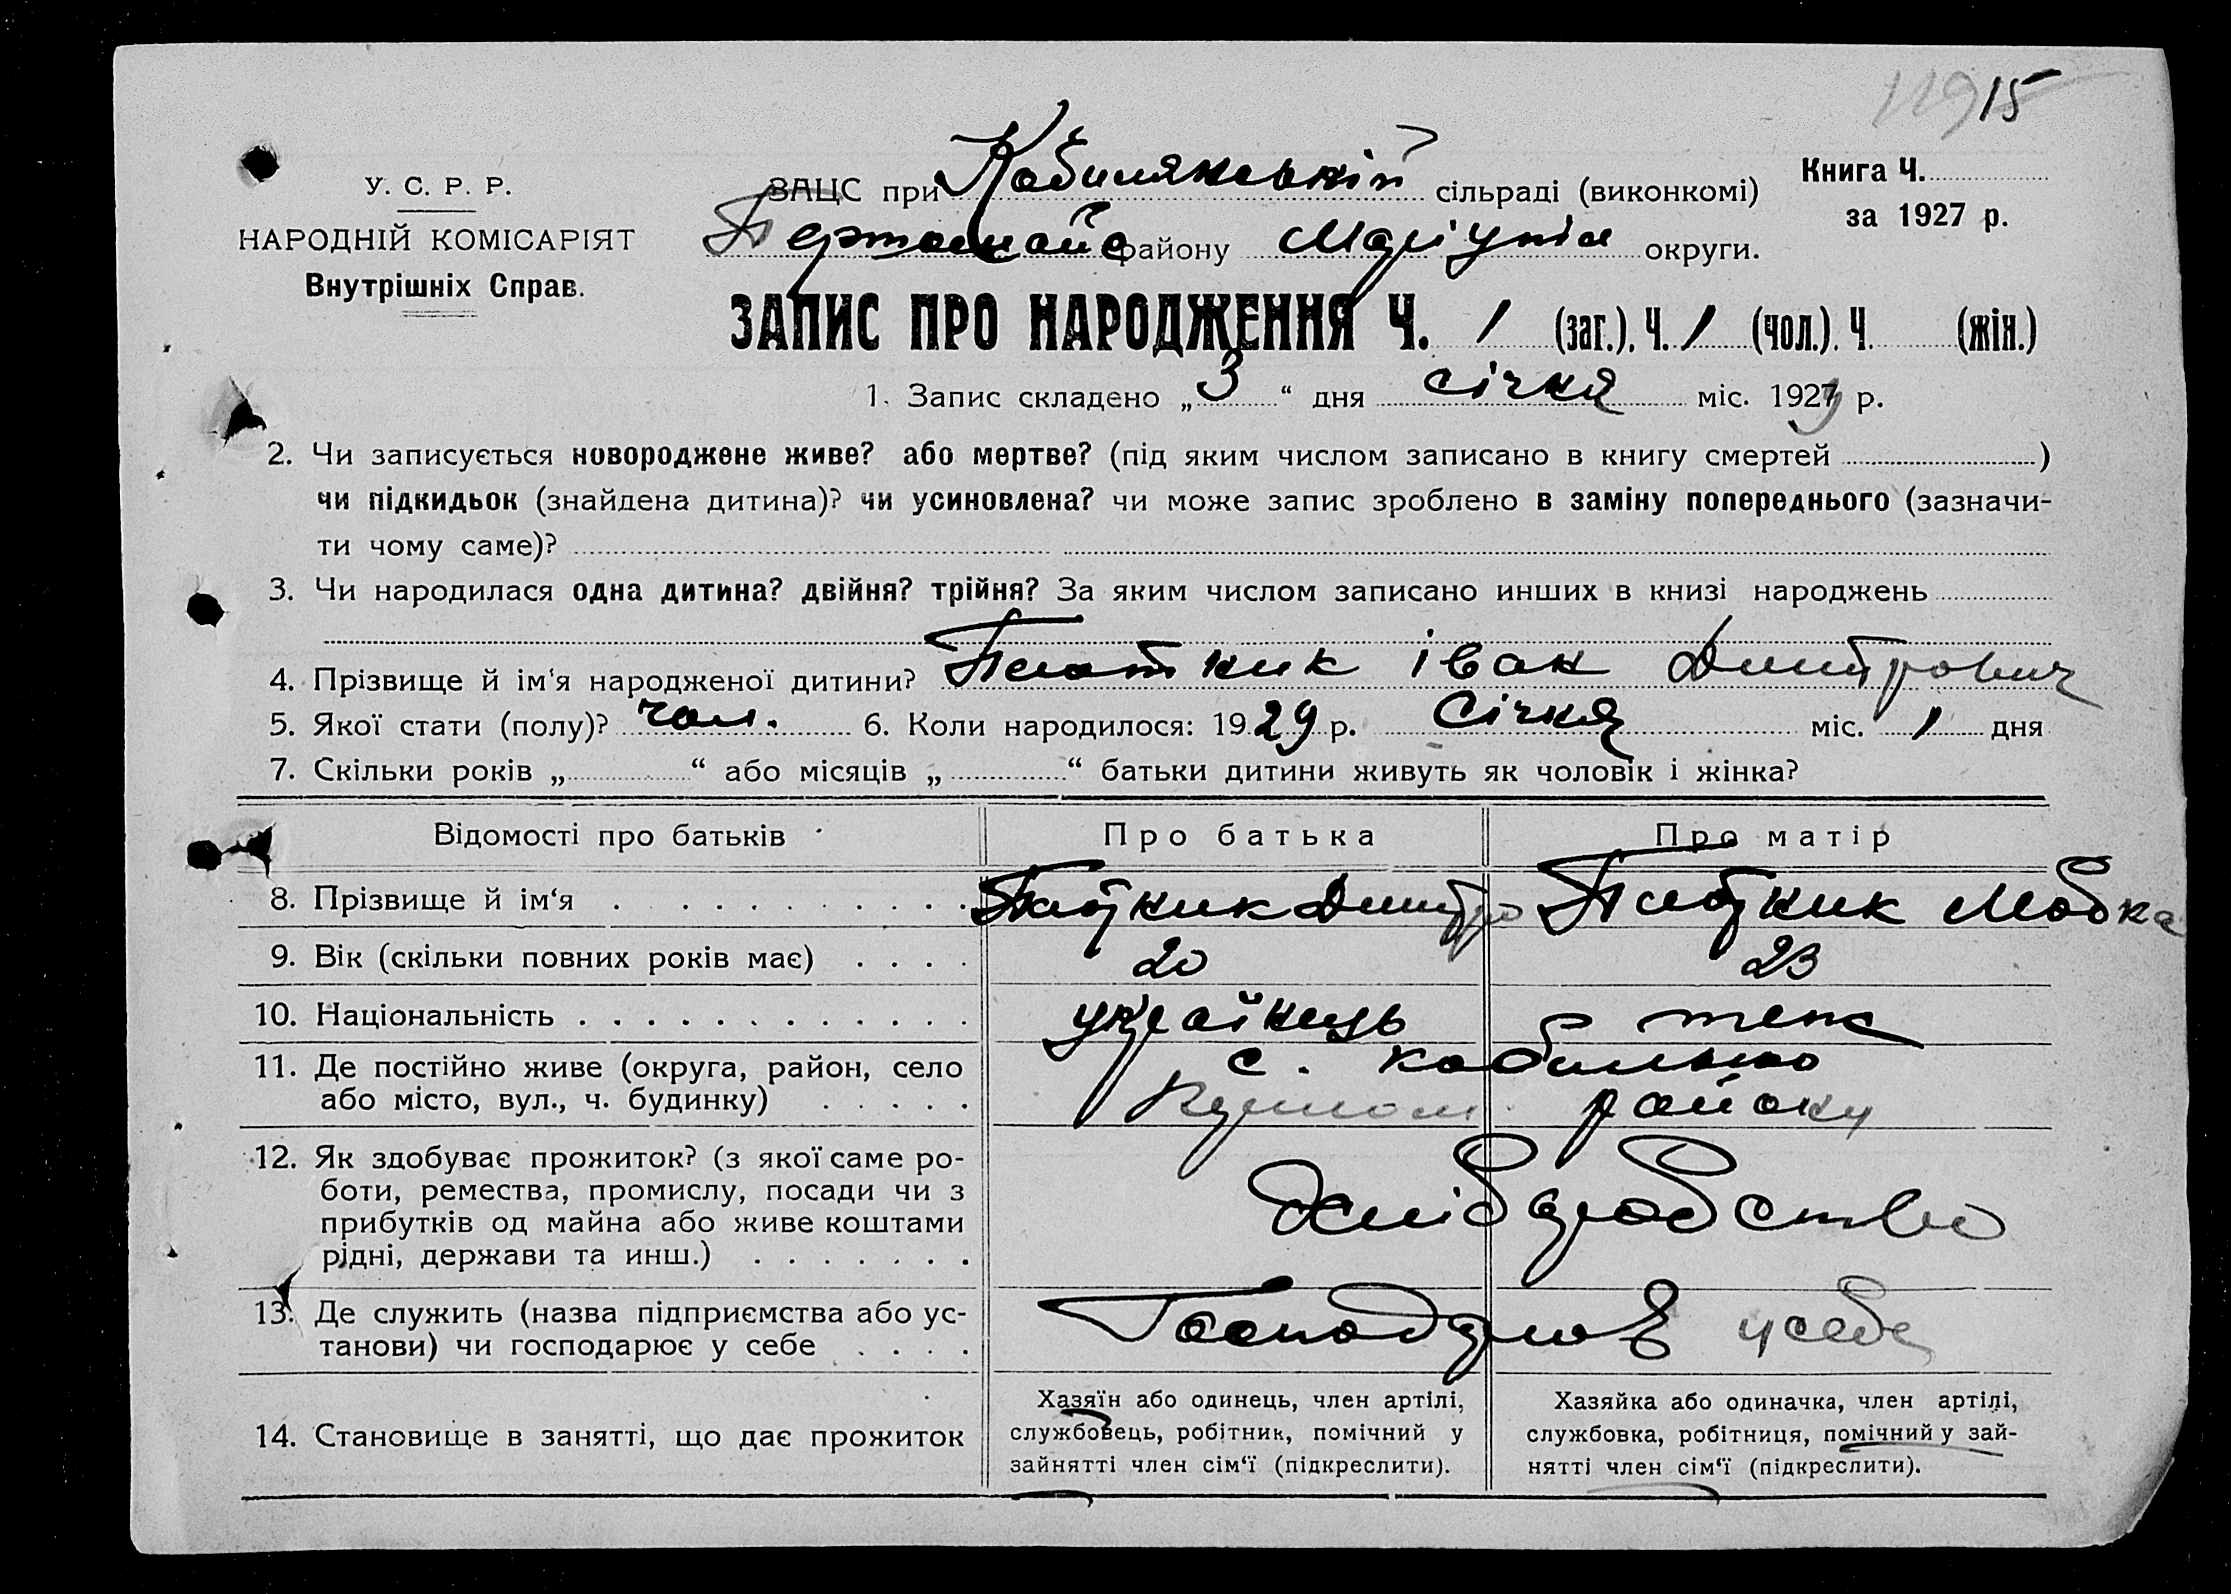 15
У. С. Р. Р.
НАРОДНІЙ КОМІСАРІЯТ
Внутрішніх Справ.
ЗАЦС при сільраді (виконкомі)
району округи.
Книга Ч.
за 1927 р.
ЗАПИС ПРО НАРОДЖЕННЯ Ч. 1 (заг.). Ч. 1 (чол.). Ч. (жін.)
1. Запис складено „ 3 “ дня січня міс. 1929 р.
2. Чи записується новороджене живе? або мертве? (під яким числом записано в книгу смертей )
чи підкидьок (знайдена дитина)? чи усиновлена? чи може запис зроблено в заміну попереднього (зазначи-
ти чому саме)?
3. Чи народилася одна дитина? двійня? трійня? За яким числом записано инших в книзі народжень
4. Прізвище й ім‘я народженої дитини? Іван Дмитрович
5. Якої стати (полу)? чол. 6. Коли народилося: 1929 р. Січня міс. 1 дня
7. Скільки років „ “ або місяців „ “ батьки дитини живуть як чоловік і жінка?
Відомості про батьків Про батька Про матір
8. Прізвище й ім‘я Дмитро
9. Вік (скільки повних років має) 20 23
10. Національність українець теж
11. Де постійно живе (округа, район, село с.
або місто, вул., ч. будинку) району
12. Як здобуває прожиток? (з якої саме ро-
боти, ремества, промислу, посади чи з
прибутків од майна або живе коштами
рідні, держави та инш.) хліборобство
13. Де служить (назва підприємства або ус-
танови) чи господарює у себе Господарює у себе
14. Становище в занятті, що дає прожиток
Хазяїн або одинець, член артілі,
службовець, робітник, помічний у
зайнятті член сім‘ї (підкреслити).
Хазяйка або одиначка, член артілі,
службовка, робітниця, помічний у зай-
нятті член сім‘ї (підкреслити).